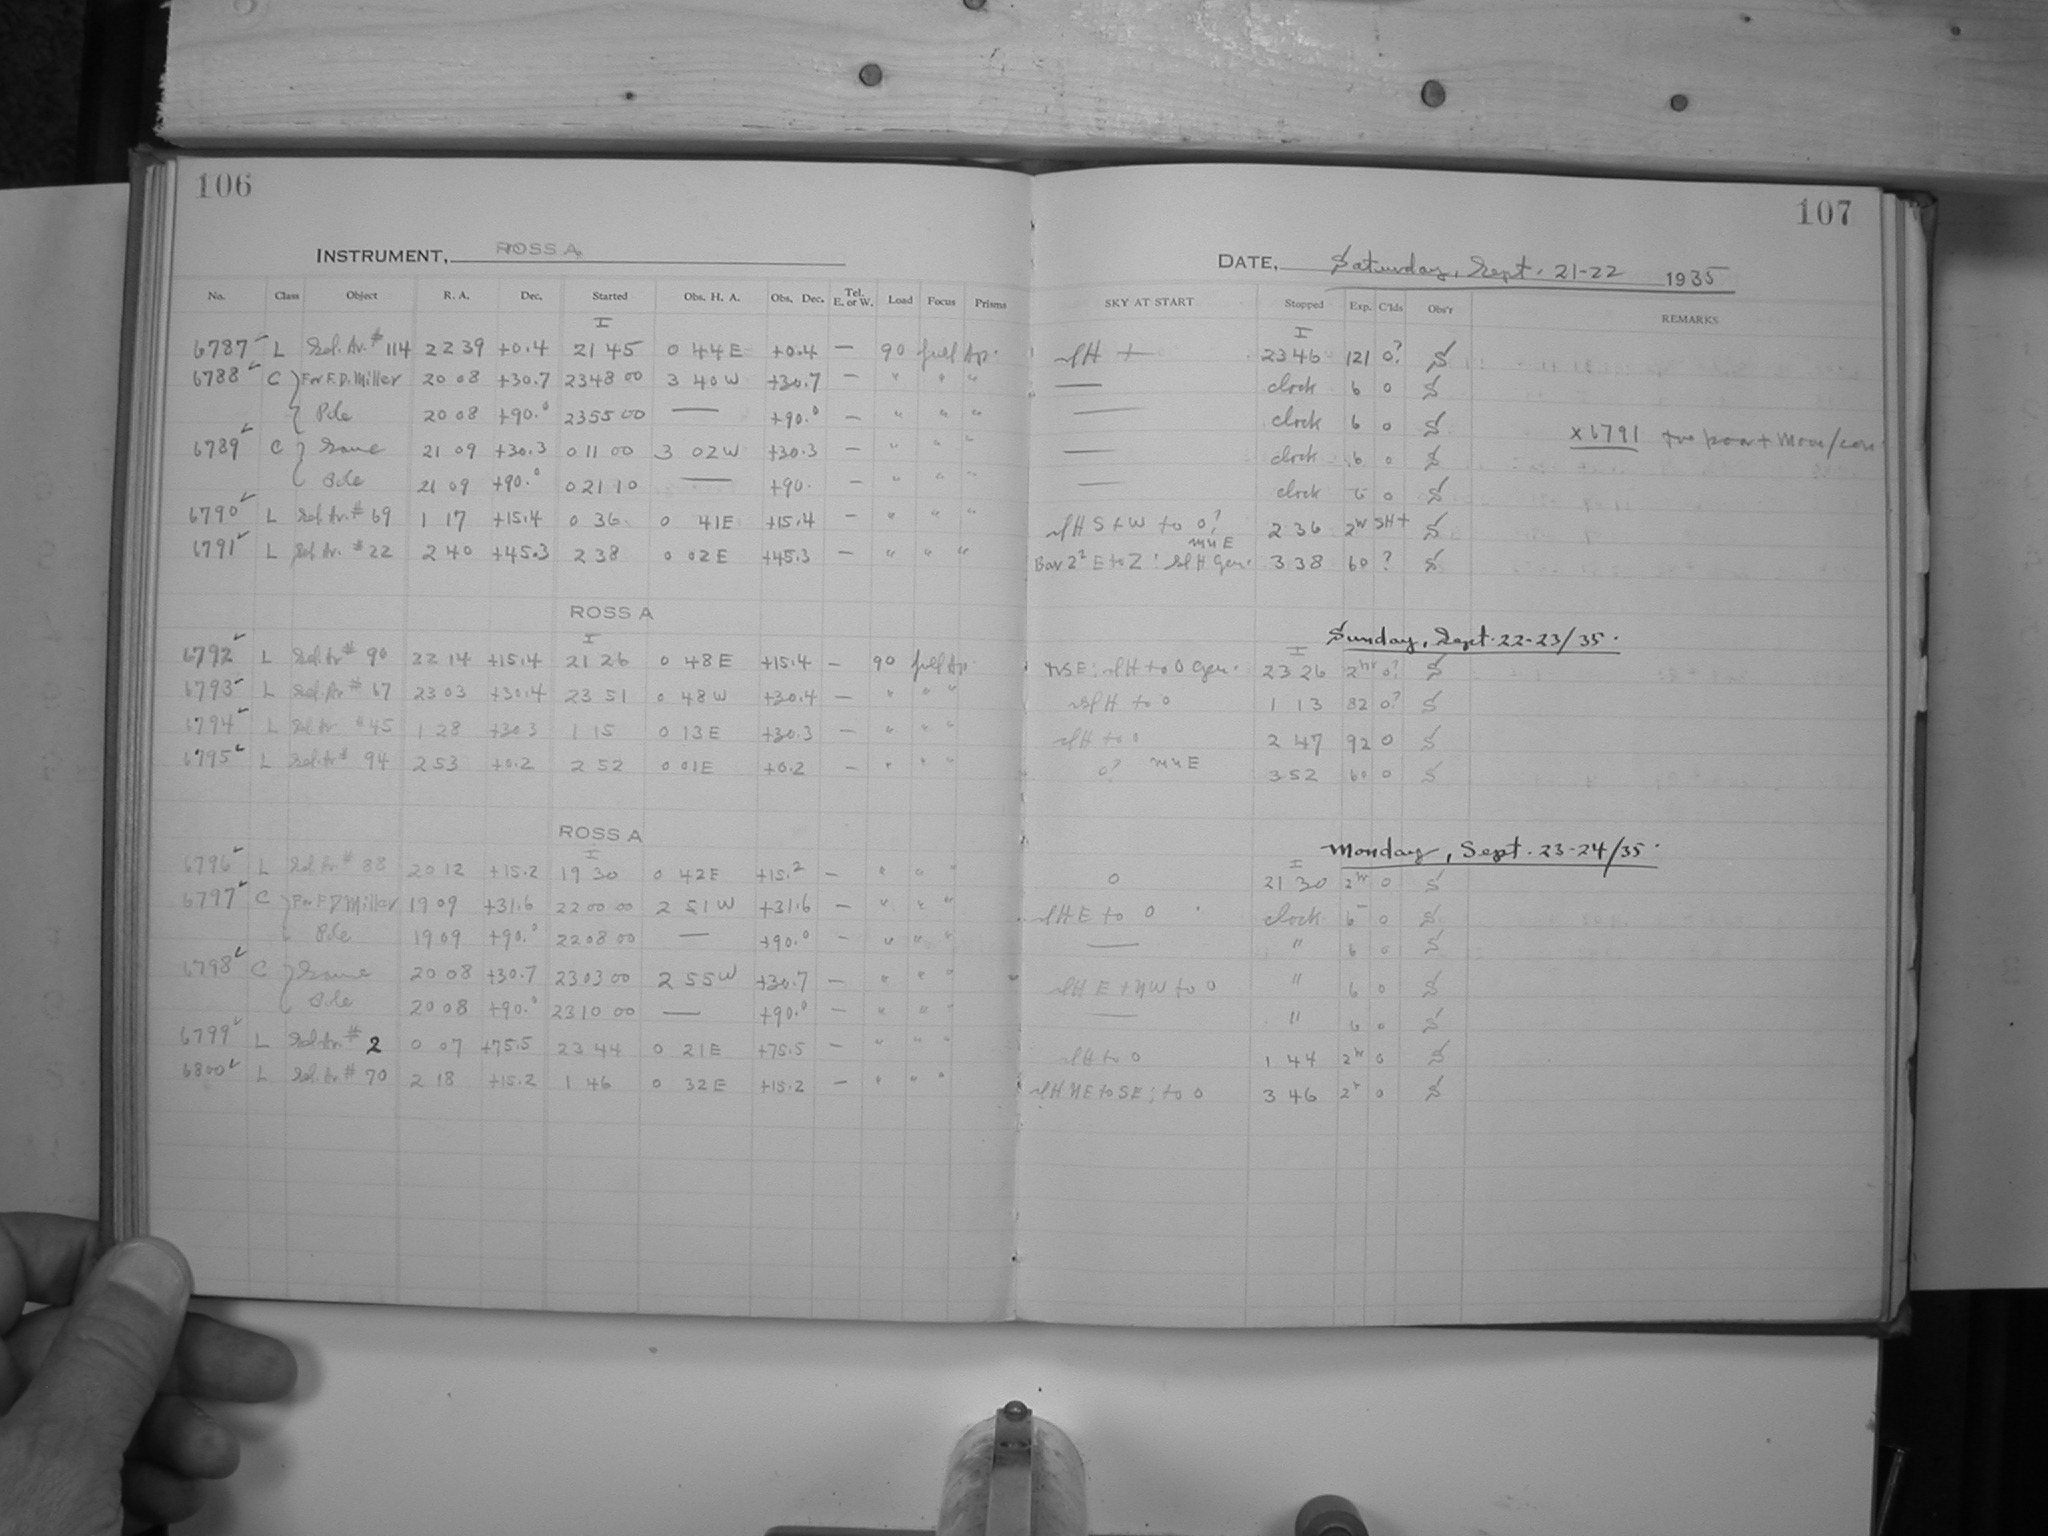 106
INSTRUMENT, ROSS A
No. Class Object R. A. Dec. Started Obs. H. A. Obs. Dec. Tel. E. or W. Load Focus Prisms
I
6787 L Sel. Ar. # 114 22 39 +0.4 21 45 0 44 E +0.4 — 90 full Ap.
6788 C For F.D. Miller 20 08 +30.7 23 48 00 3 40 W +30.7 — " " "
Pole 20 08 +90.0 23 55 00 — +90.0 — " " "
6789 C Same 21 09 +30.3 0 11 00 3 02 W +30.3 — " " "
Pole 21 09 +90.0 0 21 10 — +90. — " " "
6790 L Sel. Ar. # 69 1 17 +15.4 0 36 0 41 E +15.4 — " " "
6791 L Sel. Ar. # 22 2 40 +45.3 2 38 0 02 E +45.3 — " " "
ROSS A
I
6792 L Sel. Ar # 90 22 14 +15.4 21 26 0 48 E +15.4 — 90 full Ap.
6793 L Sel. Ar # 67 23 03 +30.4 23 51 0 48 W +30.4 — " " "
6794 L Sel. Ar # 45 1 28 +30.3 1 15 0 13 E +30.3 — " " "
6795 L Sel. Ar # 94 2 53 +0.2 2 52 0 01 E +0.2 — " " "
ROSS A
I
6796 L Sel. Ar # 88 20 12 +15.2 19 30 0 42 E +15.2 — " " "
6797 C For F D Miller 19 09 +31.6 22 00 00 2 51 W +31.6 — " " "
Pole 19 09 +90.0 22 08 00 — +90.0 — " " "
6798 C Same 20 08 +30.7 23 03 00 2 55 W +30.7 — " " "
Pole 20 08 +90.0 23 10 00 — +90.0 — " " "
6799 L Sel. Ar # 2 0 07 +75.5 23 44 0 21 E +75.5 — " " "
6800 L Sel. Ar # 70 2 18 +15.2 1 46 0 32 E +15.2 — " " "
107
DATE, Saturday, Sept. 21-22 1935
SKY AT START Stopped Exp. C'lds Obs'r REMARKS
I
slH + 23 46 121 0? S
— clock 6 0 S
— clock 6 0 S x 6791
— clock 6 0 S
— clock 6 0 S
slH S + W to 0? 2 36 2hr SH+ S
mnE
Bar 2² E to Z: slH Gen. 3 38 60 ? S
Sunday, Sept. 22-23/35.
I
slH to 0 Gen. 23 26 2hr 0? S
slH to 0 1 13 82 0? S
slH to 0 2 47 92 0 S
0? mnE 3 52 60 0 S
Monday, Sept. 23-24/35.
I
0 21 30 2hr 0 S
slH E to 0 clock 6 0 S
— " 6 0 S
slH E + NW to 0 " 6 0 S
— " 6 0 S
slH to 0 1 44 2hr 0 S
slH NE to SE; to 0 3 46 2hr 0 S